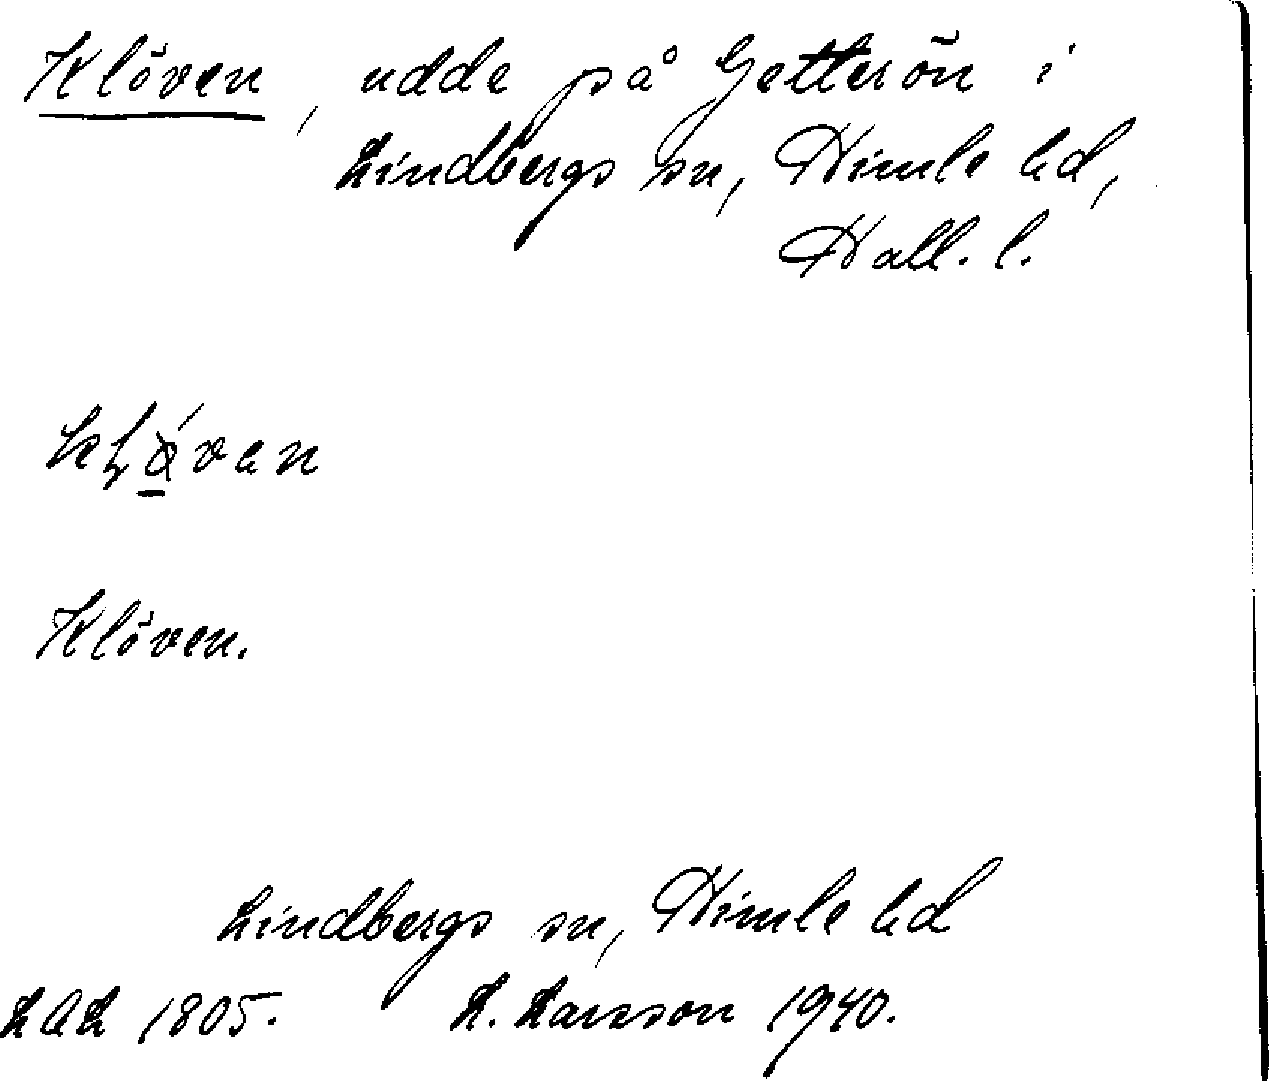 Klöven, udde på Getterön i
Lindbergs sn, Himle hd,
Hall. l.
Klöven.
Lindbergs sn, Himle hd
LUL 1805. L. Larsson 1940.